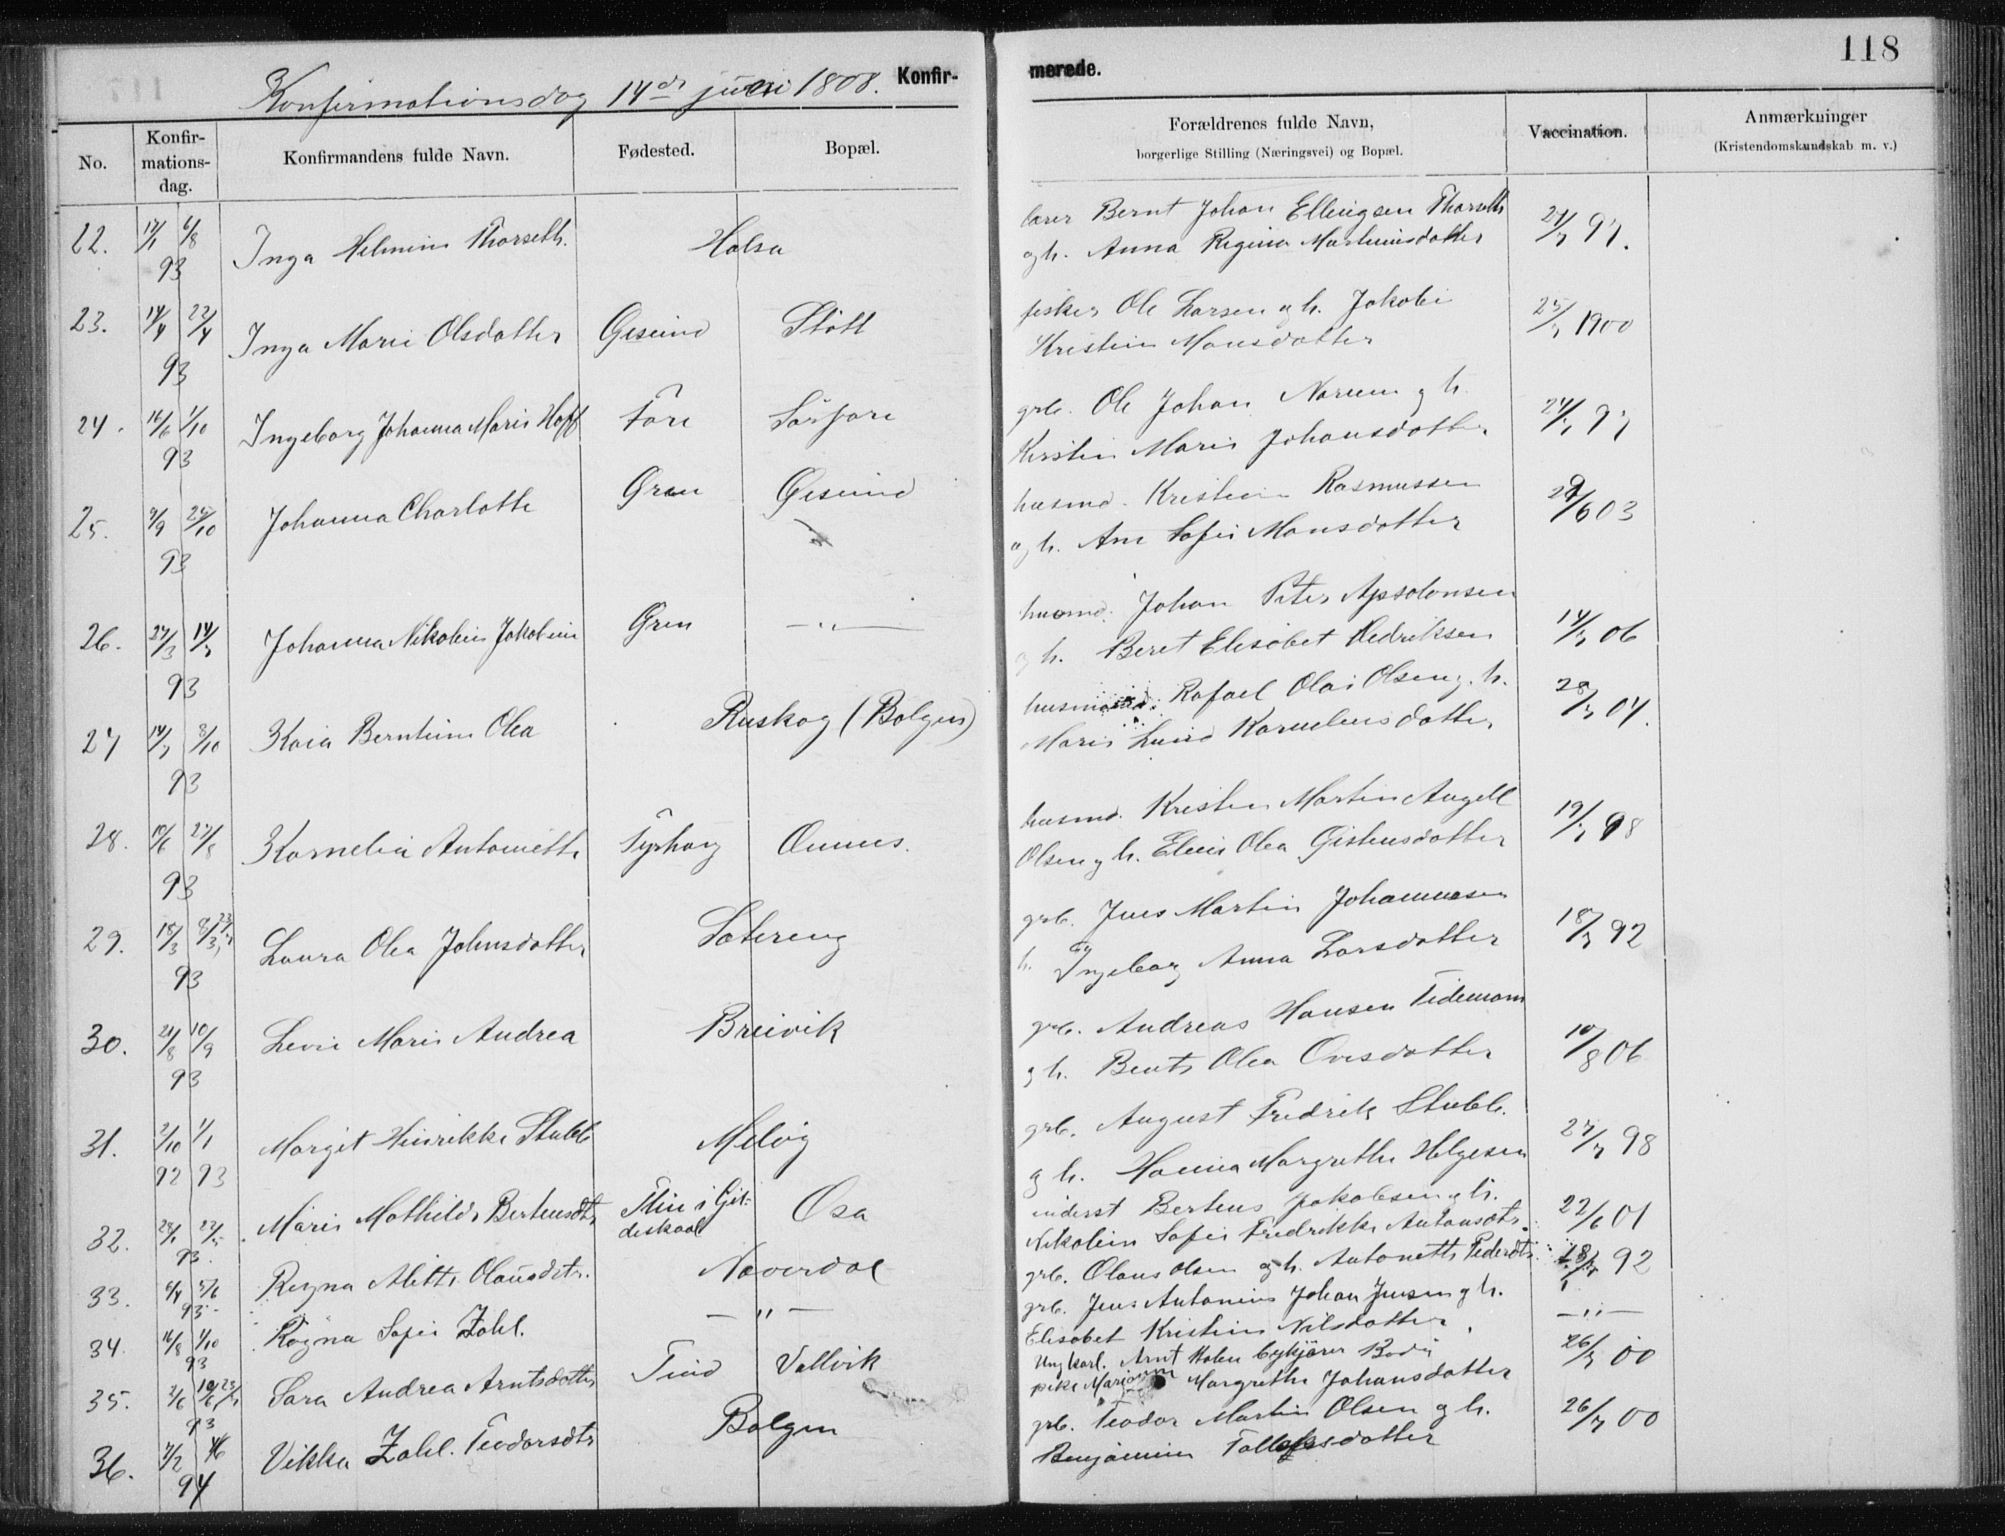 118
Konfirmationsdag 14de juni 1808. Konfir-
merede.
No.
Konfir-
mations-
dag.
Konfirmandens fulde Navn.
Fødested.
Bopæl.
Forældrenes fulde Navn,
borgerlige Stilling (Næringsvei) og Bopæl.
Vaccination.
Anmærkninger
(Kristendomskundskab m. v.)
22. 6/8 93 Inga Helmine Thorseth. Halsa
Bernt Johan Ellingsen Thorseth
og h. Anna Regina Martinusdatter
23. 14/4 23/4 93 Inga Marie Olsdatter Gjesund Støtt
fisker Ole Larsen og h. Jakobi
Kristine Monsdatter 25/7 1900
24. 16/6 1/10 93 Ingeborg Johanna Marie Hoff Fore Sørfore
grb. Ole Johan
Kirstin Marie Johansdatter
25. 9/9 93 Johanna Charlotte Grøn Gjesund
husmd. Kristian Rasmussen
og h. Ane Sofie Monsdatter /6 03
26. 27/3 14/7 93 Johanna Nikoline Jakobine Grøn — " —
husmd. Johan Peter Apsolonsen
og h. Beret Elisabet Hedriksen 14/7 06
27 14/7 8/10 93 Kaia Berntine Olea Ruskag (Bolgen)
husmand. Rafael Olai Olsen og h.
Marie Luise Kornelius datter, 28/7 04.
28. 93 Kornelia Antonette Tyvhaug Ønnes.
husmd. Kristen Martin Angell
Olsen og h. Eline Olea Gistensdatter 98
29. 18/3 93 Laura Olea Johnsdatter Satereng
grb. Jens Martin Johannesen
h. Ingeborg Anna Larsdatter 18/7 92
30. 21/8 10/9 93 Levie Marie Andrea Breivik
grb. Andreas Hansen Tidemann
og h. Olea Ovesdatter 10/8 06
31. 2/10 92 1/1 93 Margit Hinrikke Stubb Melvig
grb. August Fredrik Stubb.
og h. Hanna Margrethe Helgesen 27/7 98
32. 93 Marie Mathilde Bertheusdtr Gil-
deskaal Osa
inderst Berteus Jakobsen og h.
Nikoline Sofie Fredrikke Antonsdtr. 22/6 01
33. 6/4 5/6 93 Regna Alette Olausdtr. Naverdal
grb. Olaus Olsen og h. Antonette Pedersdtr. 92
34. 16/8 1/10 93 Ragna Sofie Zahl. — " —
grb. Jens Antonius Johan Jensen og h.
Elisabet Kristine Nilsdatter, — " —
35. 2/6 93 Sara Andrea Arntsdatter Tind Vallvik
Ungkarl. Arnt Bodø
pike Mariann Margrethe Johansdatter 26/7 00
36. 7/2 4/6 94 Vikka Zahl. Teodorsdtr Bolgen
grb. Teodor Martin Olsen og h.
Benjamine Tollefsdatter 26/7 00